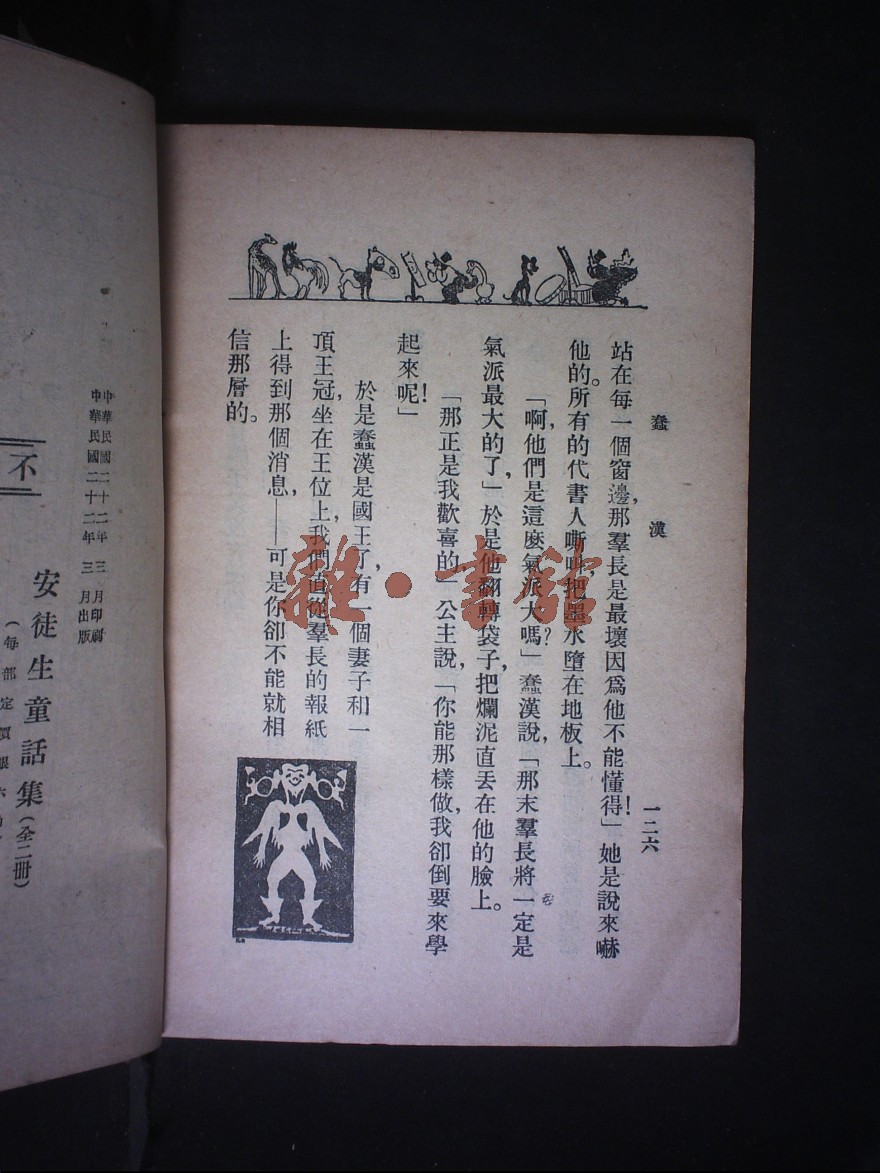 蠢漢
一二六
站在每一個窗邊,那羣長是最壞因爲他不能懂得!」她是說來嚇
他的。所有的代書人嘶叫,把墨水墮在地板上。
「啊,他們是這麼氣派大嗎?」蠢漢說,「那末羣長將一定是
氣派最大的了」,於是他翻轉袋子,把爛泥直丟在他的臉上。
「那正是我歡喜的,」公主說,「你能那樣做,我卻倒要來學
起來呢!」
於是蠢漢是國王了,有一個妻子和一
頂王冠,坐在王位上,我們直從羣長的報紙
上得到那個消息——可是你卻不能就相
信那層的。
雜·書館
中華民國二十二年三月印刷
中華民國二十二年三月出版
不
安徒生童話集(全二冊)
(每部定價銀六